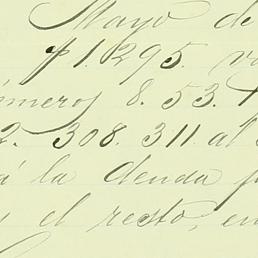 Mayo de
$1.295.
números 8. 53.
2. 308. 311. al
á la deuda
el resto, en